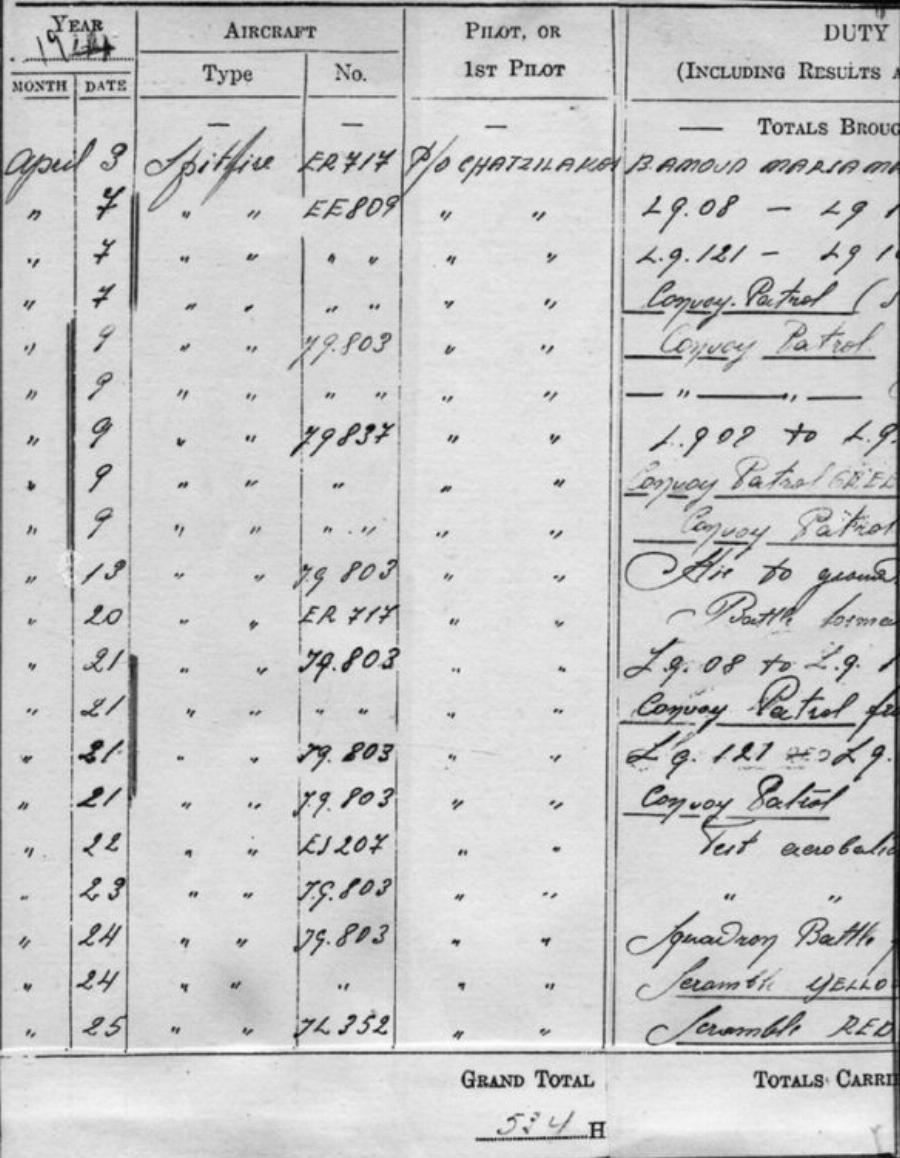 YEAR AIRCRAFT PILOT, OR DUTY
1944 Type No. 1ST PILOT (INCLUDING RESULTS A
MONTH DATE
— — — — TOTALS BROUG
April 3 Spitfire ER717 P/O CHATZILAKOS B. AMOUD MARIA MA
" 7 " " EE809 " " L9.08 - L9 1
" 7 " " " " " " L.g. 121 - L9 1
" 7 " " " " " " Convoy. Patrol (
" 9 " " J9.803 " " Convoy Patrol.
" 9 " " " " " " — " — " —
" 9 " " J9837 " " L.g 02 to L.g.
" 9 " " " " " Convoy Patrol GREE
" 9 " " " " " " Convoy Patrol
" 13 " " J.g 803 Air to ground
" 20 " " ER 717 " " Battle forma
" 21 " " J9.803 " " L.g. 08 to L.g. 1
" 21 " " " " " " Convoy Patrol fro
" 21 " " J9. 803 " " L g. 121 L g.
" 21 " " J.9. 803 " " Convoy Patrol
" 22 " " EJ 207 " " Test aerobatic
" 23 " " J.G. 803 " " " "
" 24 " " JG. 803 " " Squadron Battle
" 24 " " " " " Scramble YELLO
" 25 " " JL 352 " " Scramble RED
GRAND TOTAL TOTALS CARRI
534 H